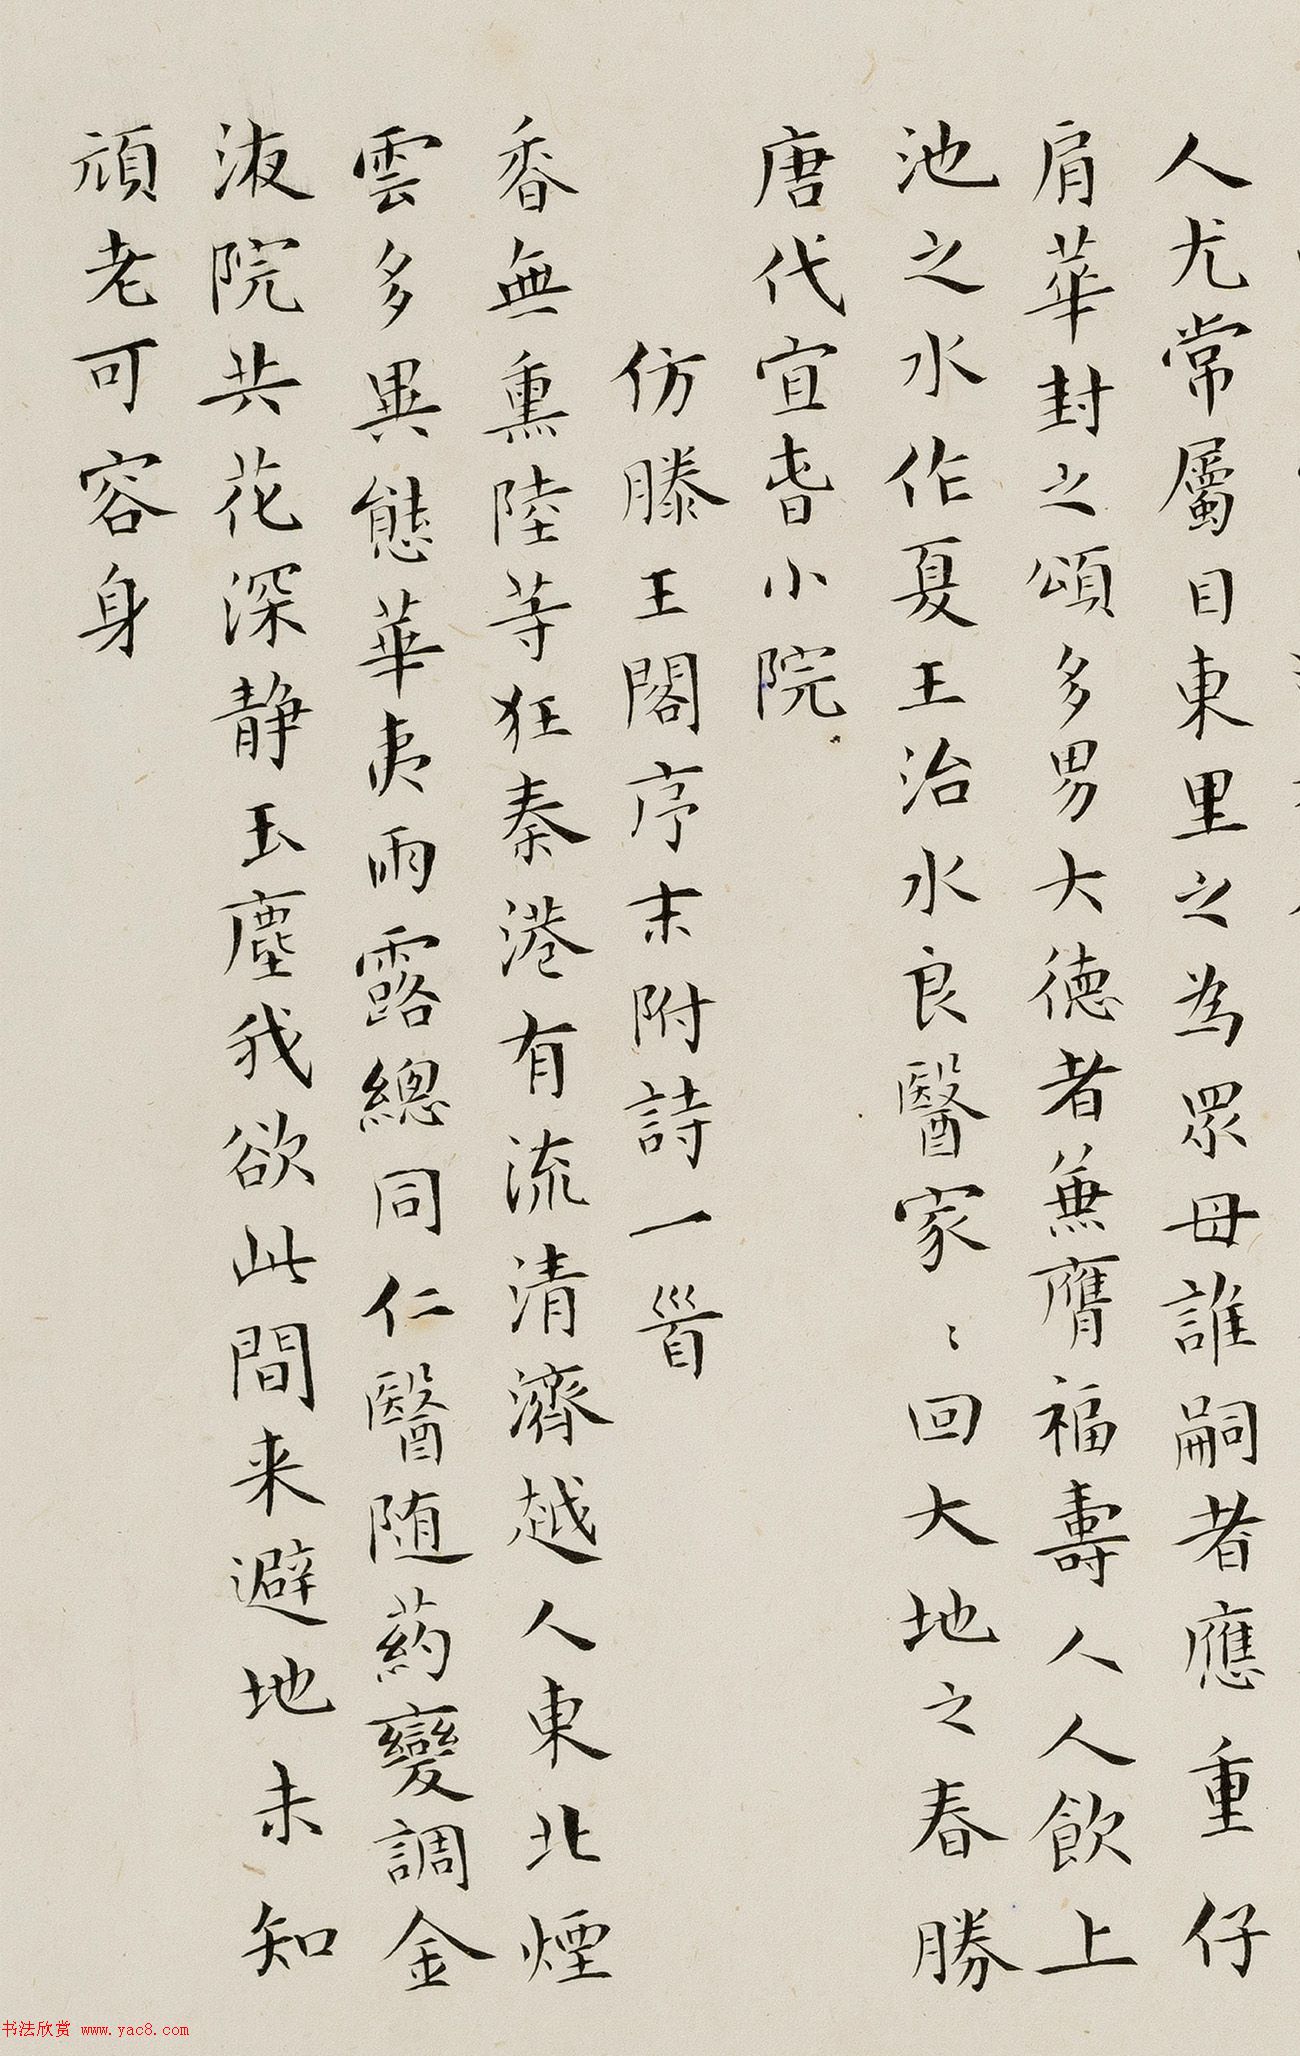 人尤常屬目東里之為眾母誰嗣者應重仔
肩華封之頌多男大德者兼膺福壽人人飲上
池之水作夏王治水良醫家〻回大地之春勝
唐代宜春小院
仿滕王閣序末附詩一首
香無熏陸等狂秦港有流清濟越人東北煙
雲多異態華夷雨露總同仁醫随葯變調金
液院共花深静玉塵我欲此間来避地未知
頑老可容身
书法欣赏 www.yac8.com